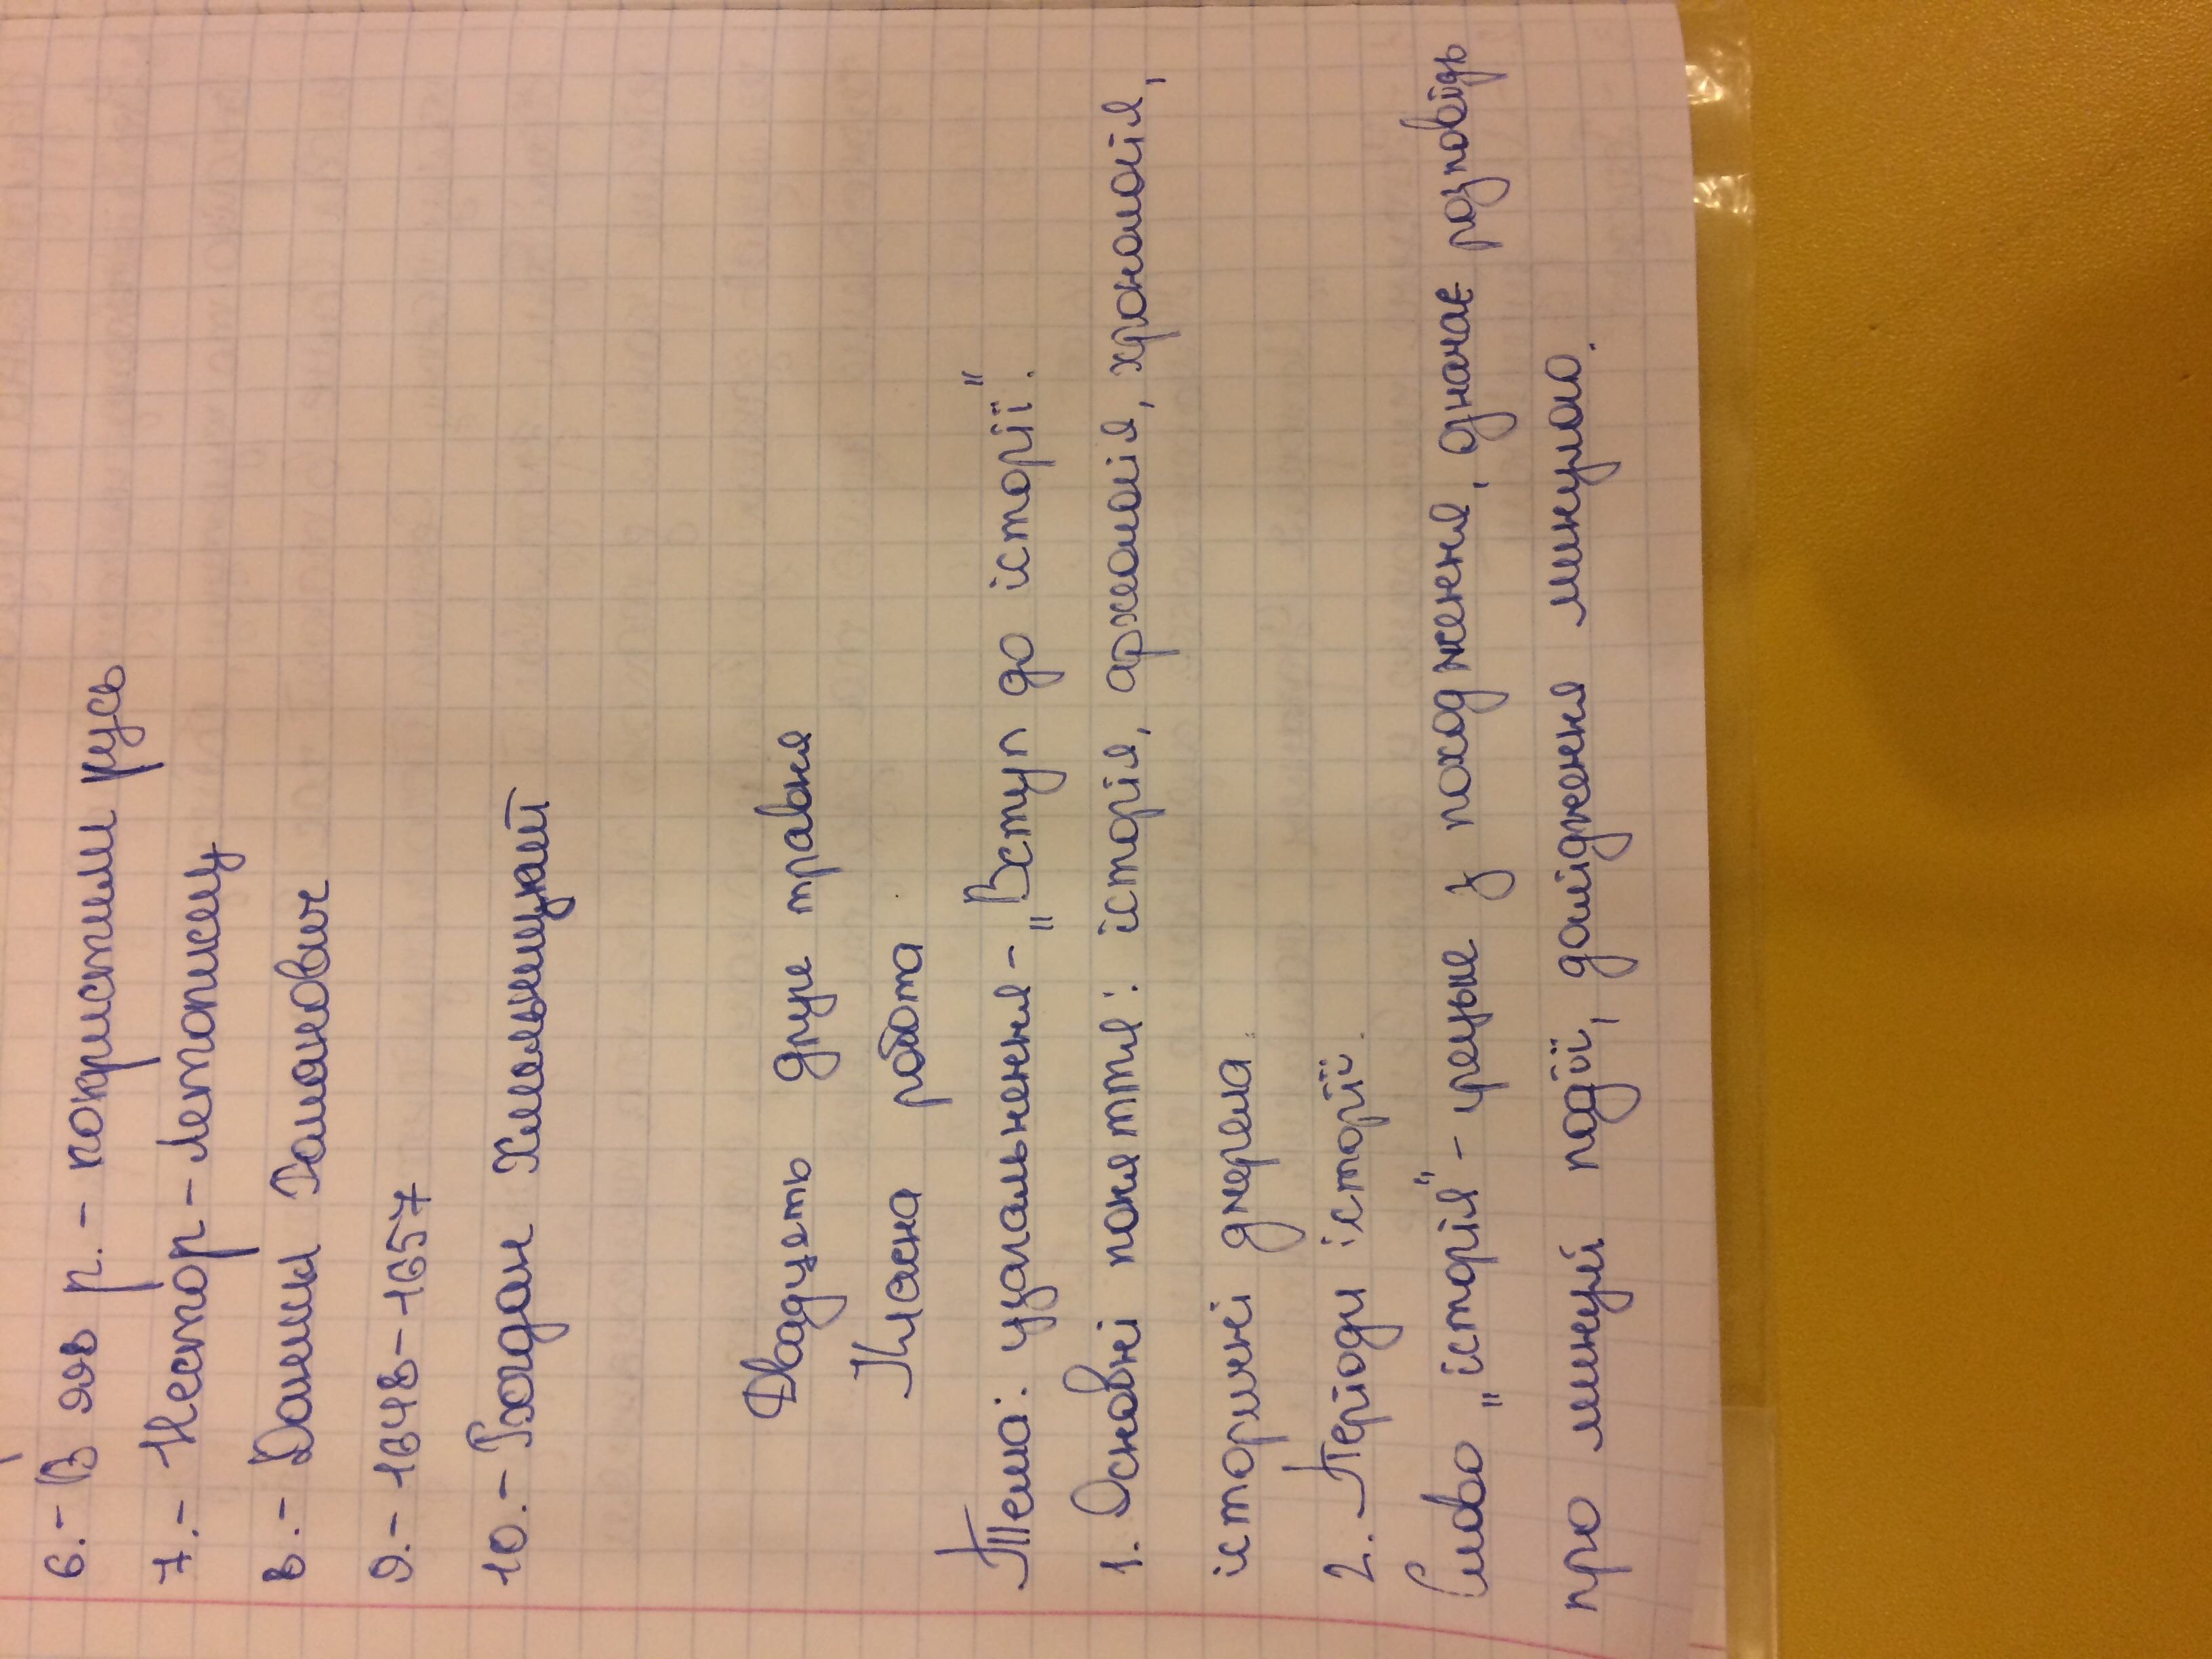 6.- В 988 р. - похристили русь
7.- Нестор - Летописец
8.- Данили Романович
9.- 1648-1657
10.- Богдан Хмельницкий
Двадцеть друге травня
Класна робота
Тема: узагальнення - „Вступ до історії".
1. Основні поняття: історія, археологія, хронологія,
історичні джерела.
2. Періоди історії.
Слово „історія" - грецьке з походження, означає розповідь
про минулі події, дослідження минулого.